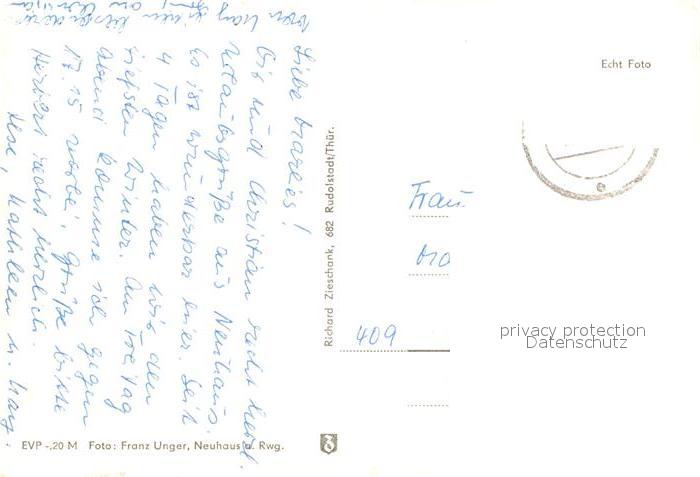 Liebe Marlies!
Dir und Christian recht herzl.
Urlaubsgrüße aus Neuhaus.
Es ist wunderbar hier. Seit
4 Tagen haben wir den
tiefsten Winter. Am Freitag
abend komme ich gegen
17.15 vorbei. Grüße bitte
Herbert recht herzlich.
Kathleen u.
Richard Zieschank, 682 Rudolstadt/Thür.
EVP -,20 M Foto: Franz Unger, Neuhaus a. Rwg.
Echt Foto
Frau
409
privacy protection
Datenschutz